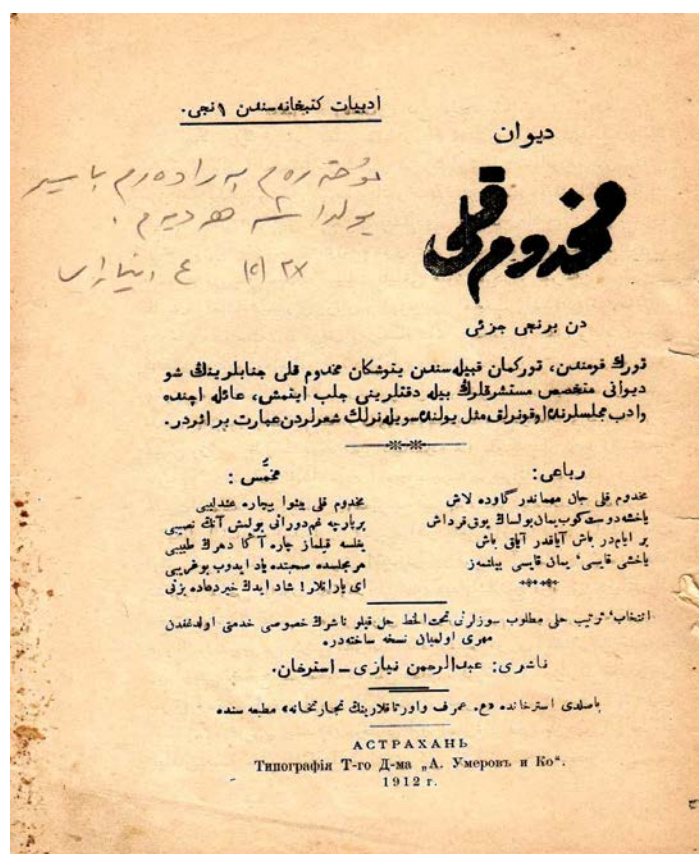 ادبیات کتبخانه‌سندن ۱نجی.
دیوان
مخدوم قلی
دن برنجی جزئی
تورك قومندن، تورکمان قبیله‌سندن یتوشکان مخدوم قلی جنابلرینڭ شو
دیوانی متخصص مستشرقلرڭ بیله دقتلرینی جلب ایتمش، عائله اچنده
وادب مجلسلرنده اوقونراق مثل یولنده سویله‌نرلك شعرلردن عبارت بر اثردر.
رباعی:
مخدوم قلی جان مهماندر گاوده لاش
یاخشه دوست کوب یمان بولساڭ یوق قرداش
بر ایام‌در باش آیاقدر آیاق باش
یاخشی قایسی، یمان قایسی بیلنمه‌ز
مخمّس:
مخدوم قلی بینوا بیچاره عندلیبی
بر پارچه غم دورانی بولمش آنڭ نصیبی
یغلسه قیلماز چاره آڭا دهرڭ طبیبی
هر مجلسده صحبتده یاد ایدوب بو غریبی
ای یارانلار! شاد ایدڭ خیر دعاده بزنی
انتخاب، ترتیب حلی مطلوب سوزلرنی تحت الخط حل قیلو ناشرڭ خصوصی خدمتی اولدغندن
مهری اولمیان نسخه ساخته‌در.
ناشری: عبدالرحمن نیازی ـ استرخان.
باصلدی استرخانده «ع. عمرف واورتاقلارینڭ تجارتخانه» مطبعه سنده
АСТРАХАНЬ
Типографія Т-го Д-ма „А. Умеровъ и Ко“.
1912 г.